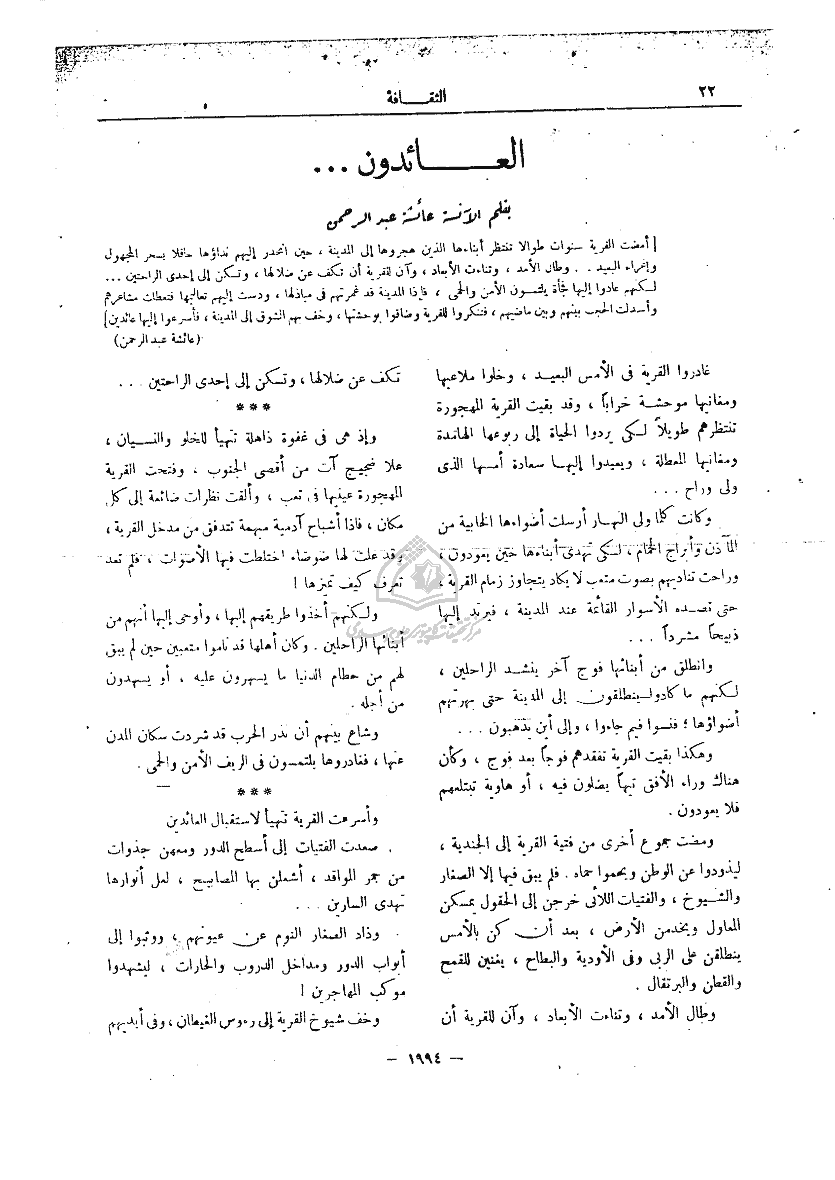 ٢٢
الثقـــافة
العـــــائدون ...
بقلم الآنسة عائشة عبد الرحمن
[ أمضت القرية سنوات طوالا تنتظر أبناءها الذين هجروها إلى المدينة ، حين انحدر إليهم نداؤها حافلا بسحر المجهول
وإغراء البعيد .. وطال الأمد ، وتناءت الأبعاد ، وآن للقرية أن تكف عن ضلالها ، وتسكن إلى إحدى الراحتين ...
لكنهم عادوا إليها فجأة يلتمسون الأمن والحمى ، فإذا المدينة قد غمرتهم فى مباذلها ، ودست إليهم تعاليها فتعطلت مشاعرهم
وأسدلت الحجب بينهم وبين ماضيهم ، فتنكروا للقرية وضاقوا بوحشتها ، وخف بهم الشوق إلى المدينة ، فأسرعوا إليها عائدين ]
(عائشة عبد الرحمن)
غادروا القرية فى الأمس البعيد ، وخلوا ملاعبها
ومغانيها موحشة خراباً ، وقد بقيت القرية المهجورة
تنتظرهم طويلاً لكى يردوا الحياة إلى ربوعها الهامدة
ومغانيها المعطلة ، ويعيدوا إليها سعادة أمسها الذى
ولى وراح ...
وكانت كلما ولى النهار أرسلت أضواءها الخابية من
المآذن وأبراج الحمام ، لكى تهدى أبناءها حين يعودون ،
وراحت تناديهم بصوت متعب لا يكاد يتجاوز زمام القرية ،
حتى تصده الأسوار القائمة عند المدينة ، فيرتد إليها
ذبيحاً مشرداً ...
وانطلق من أبنائها فوج آخر ينشد الراحلين ،
لكنهم ما كادوا ينطلقون إلى المدينة حتى بهرتهم
أضواؤها ؛ فنسوا فيم جاءوا ، وإلى أين يذهبون ...
وهكذا بقيت القرية تفقدهم فوجاً بعد فوج ، وكأن
هناك وراء الأفق تيهاً يضلون فيه ، أو هاوية تبتلعهم
فلا يعودون .
ومضت جموع أخرى من فتية القرية إلى الجندية ،
ليذودوا عن الوطن ويحموا حماه . فلم يبق فيها إلا الصغار
والشيوخ ، والفتيات اللائى خرجن إلى الحقول يمسكن
المعاول ويخدمن الأرض ، بعد أن كن بالأمس
ينطلقن على الربى وفى الأودية والبطاح ، يغنين للقمح
والقطن والبرتقال .
وطال الأمد ، وتناءت الأبعاد ، وآن للقرية أن
تكف عن ضلالها ، وتسكن إلى إحدى الراحتين ...
***
وإذ هى فى غفوة ذاهلة تتهيأ للخلو والنسيان ،
علا ضجيج آت من أقصى الجنوب ، وفتحت القرية
المهجورة عينيها فى تعب ، وألقت نظرات ضائعة إلى كل
مكان ، فاذا أشباح آدمية مبهمة تتدفق من مدخل القرية ،
وقد علت لها ضوضاء اختلطت فيها الأصوات ، فلم تعد
تعرف كيف تميزها !
ولكنهم أخذوا طريقهم إليها ، وأوحى إليها أنهم من
أبنائها الراحلين . وكان أهلها قد ناموا متعبين حين لم يبق
لهم من حطام الدنيا ما يسهرون عليه ، أو يسهدون
من أجله .
وشاع بينهم أن نذر الحرب قد شردت سكان المدن
عنها ، فغادروها يلتمسون فى الريف الأمن والحمى .
***
وأسرعت القرية تتهيأ لاستقبال العائدين
صعدت الفتيات إلى أسطح الدور ومعهن جذوات
من جمر المواقد ، أشعلن بها المصابيح ، لعل أنوارها
تهدى السارين ...
وذاد الصغار النوم عن عيونهم ، ووثبوا إلى
أبواب الدور ومداخل الدروب والحارات ، ليشهدوا
موكب المهاجرين !
وخف شيوخ القرية إلى رءوس الغيطان ، وفى أيديهم
— ١٩٩٤ —